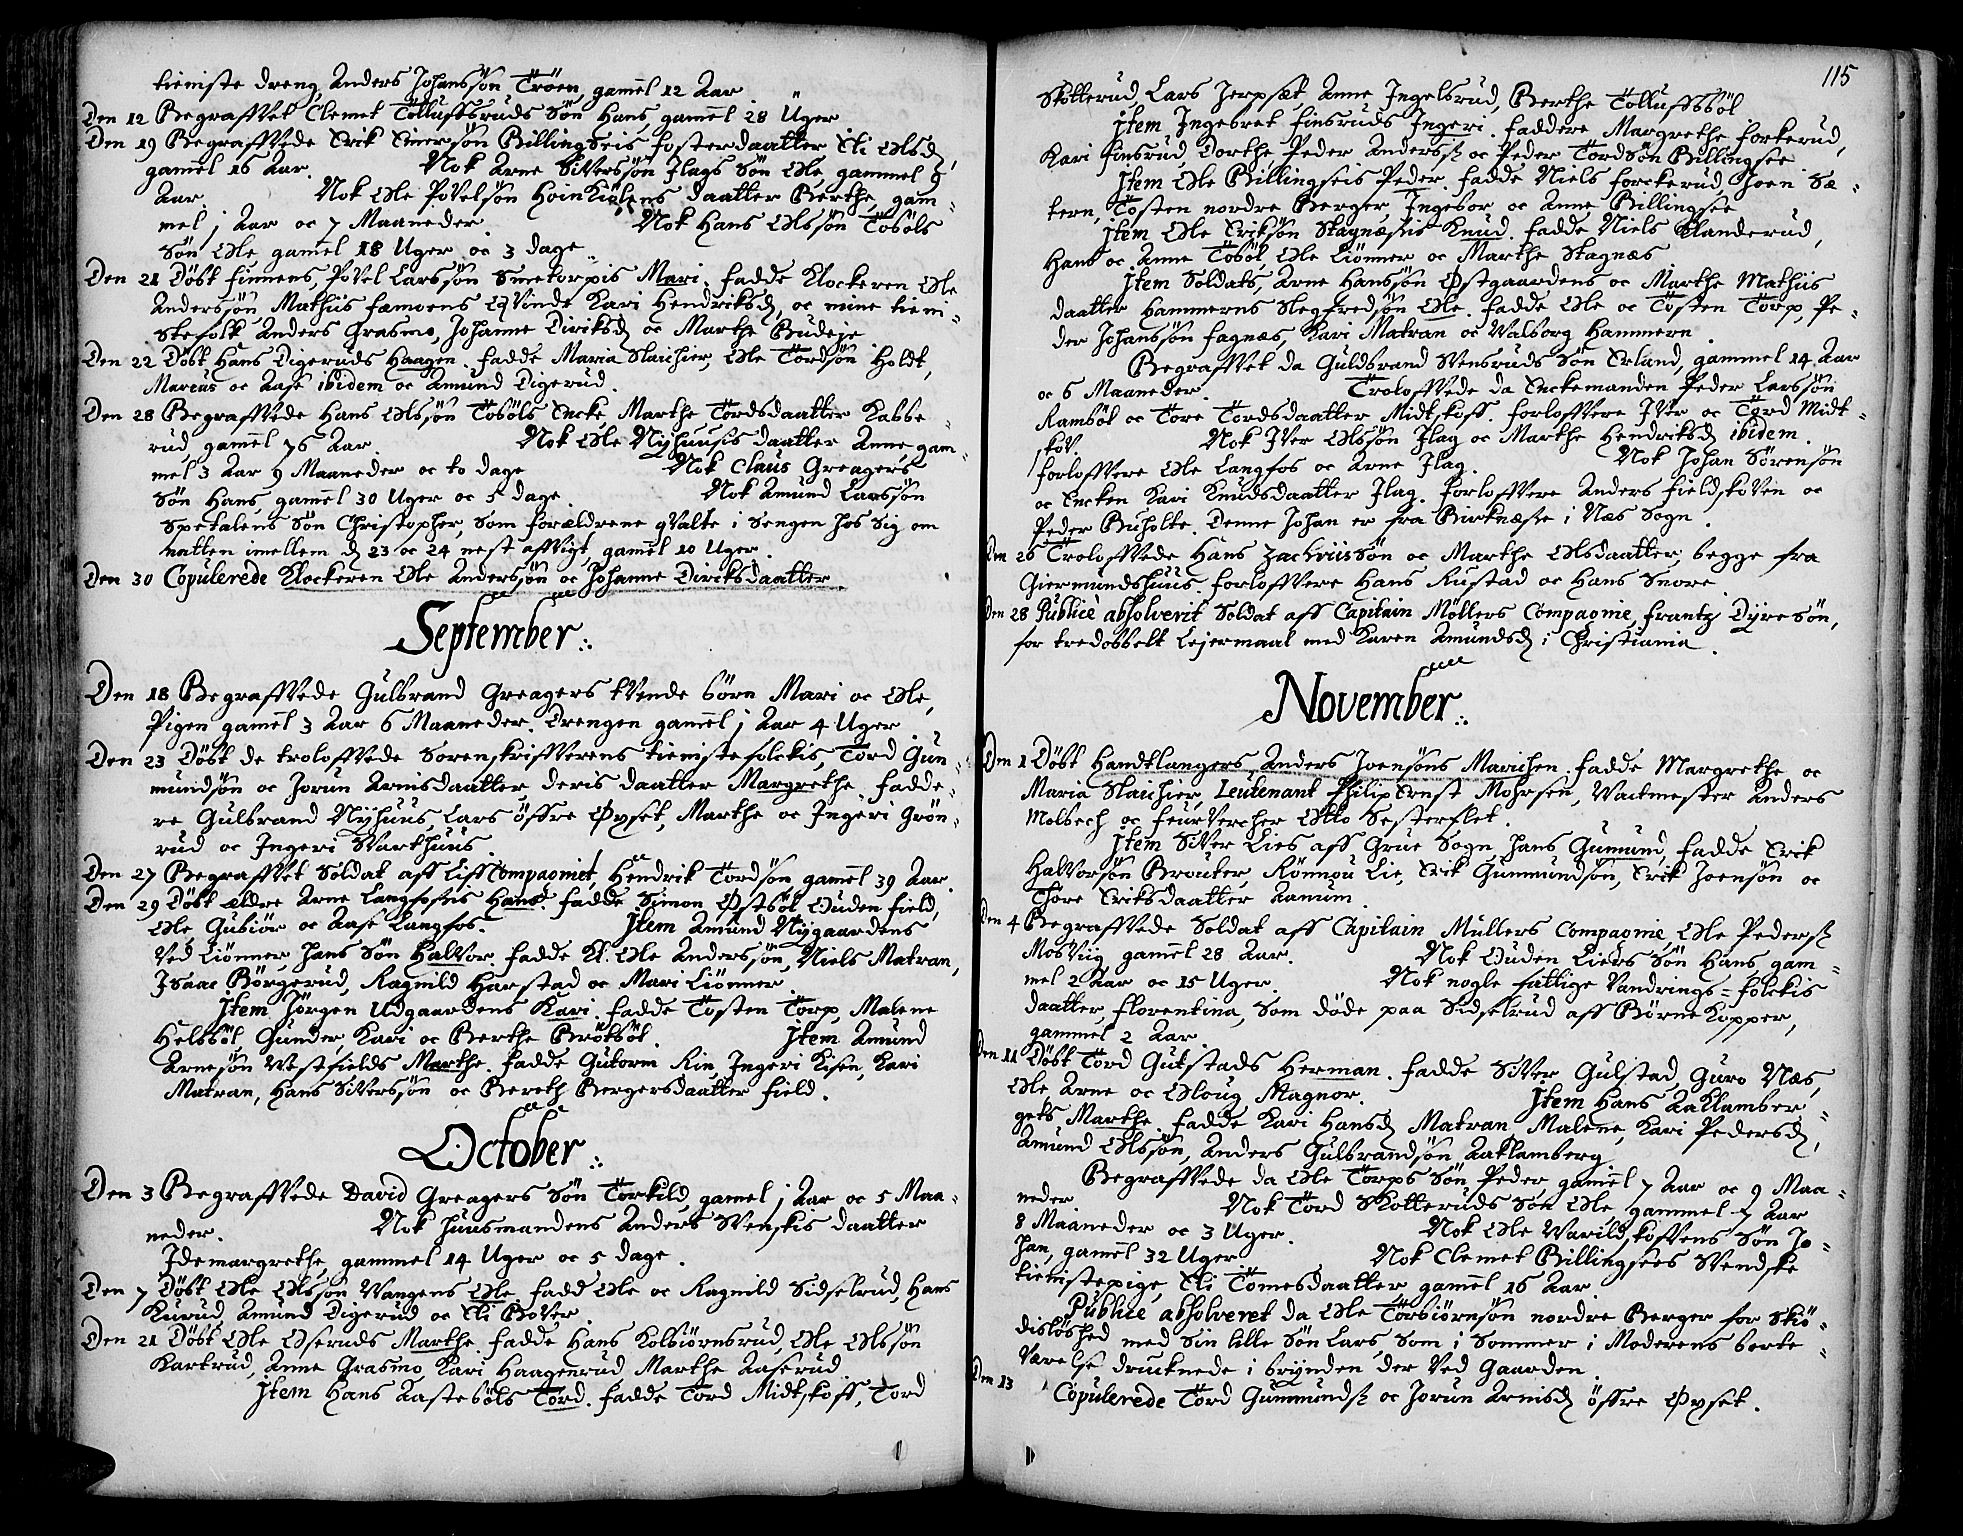 tieniste dreng, Anders Johanssön Tröen, gamel 12 Aar
Den 12 Begraffvet Clemet Tölluffsruds Sön Hans, gamel 28 Uger
Den 19 Begraffvede Erik Einersön Billingseis fosterdaatter Eli Olsd,
gamel 16 Aar. Nok Arne Sivерssön Jlags Sön Ole, gammel 9
Aar. Nok Ole Povelsön Hoinkiölens daatter Berthe, gam=
mel j Aar oc 7 Maaneder. Nok Hans Olssön Töböls
Sön Ole gamel 18 Uger oc 3 dage.
Den 21 Döbt finnens, Povel Larssön Smetorpis Mari. fadde Klockeren Ole
Anderssön, Mathiis fæmoens Qvinde Kari Hendriksd, oc mine tieni=
stefolk Anders Grasmo, Johanne Diriksd oc Marthe Budeye
Den 22 Döbt Hans Digeruds Haagen. fadde Maria Slaichier, Ole Tordsön Holdt,
Marcus oc Aase ibidem oc Amund Digerud.
Den 28 Begraffvede Hans Olssön Töböls Encke Marthe Tordsdaatter Kabbe=
rud, gamel 76 Aar. Nok Ole Nyhuusis daatter Anne gam=
mel 3 Aar 9 Maaneder oc to dage Nok Claus Greagers
Sön Hans, gamel 30 Uger oc 5 dage. Nok Amund Larssön
Spetalens Sön Christopher, Som forældrene qvalte i Sengen hos Sig om
natten imellem d 23 oc 24 nest affvigt, gamel 10 Uger.
Den 30 Copulerede Klockeren Ole Anderssön oc Johanne Dircksdaatter
September.
Den 18 Begraffvede Gulbrand Greagers tvende börn Mari oc Ole,
Pigen gamel 3 Aar 6 Maaneder. Drengen gamel j Aar 4 Uger
Den 23 Döbt de troloffvede Sorenskrifverens tienistefolckis, Tord Gun=
mundsön oc Jorun Arnisdaatter deris daatter Margrethe. fadde=
re Gulbrand Nyhuus, Lars öffre Öyset, Marthe oc Ingeri Grön=
rud oc Ingeri Varkhuus
Den 27 Begraffvet Soldat aff Liff Compagniet, Hendrik Tordsön gamel 39 Aar.
Den 29 Döbt ældre Arne Langfossis Hans. fadde Simon Östböl Ouden field,
Ole Gubiör oc Aase Langfos. Item Amund Nygaardens
ved Liönner, Hans Sön Halvor. fadde Kl. Ole Anderssön, Niels Matran,
Isaac Börgerud, Ragnild Harstad oc Mari Liönner.
Item Jörgen Udgaardens Kari. fadde Tosten Torp, Malene
Helböl, Gunder, Kari oc Berthe Bröböl. Item Amund
Arnesön Vestfields Marthe. fadde Gutorm Rin, Ingeri Kisen, Kari
Matran, Hans Siverssön oc Bereth Bergersdaatter field.
October.
Den 3 Begraffvede David Greagers Sön Törkild gamel j Aar oc 5 Maa=
neder. Nok Huusmandens Anders Svenskis daatter
Idemargrethe, gammel 14 Uger oc 5 dage.
Den 7 Döbt Ole Olssön Vangens Ole. fadd Ole oc Ragnild Sidselrud, Hans
Kurud, Amund Digerud oc Eli Bover.
Den 21 Döbt Ole Oseruds Marthe. fadde Hans Kolbiörnsrud, Ole Olssön
Kartrud, Anne Grasmo, Kari Haagenrud, Marthe Aaserud
Item Hans Kasteböls Tord. fadde Tord Midtskoff, Tord
115
Skotterud, Lars Jerpset, Anne Ingelsrud, Berthe Tölluffsböl
Item Ingebret Finsruds Ingeri. faddere Margrethe forkerud,
Kari finsrud, Dorthe Peder Anderss oc Peder Tordsön Billingsee
Item Ole Billingseis Peder. fadde Niels forckerud, Joen Sæ=
tern, Tosten nordre Berger, Ingebor oc Anne Billingsee
Item Ole Eriksön Skagnæssis Knud. fadde Niels Klanderud,
Hans oc Anne Töböl, Ole Liönner oc Marthe Skagnæs
Item Soldats, Arne Hanssön Östgaardens oc Marthe Mathiis
daatter Hammerns Slegfredsön Ole. fadde Ole oc Tosten Torp, Pe=
der Johanssön fagnæs, Kari Matran oc Valborg Hammern.
Begraffvet da Guldbrand Svensruds Sön Erland, gammel 14 Aar
oc 6 Maaneder. Troloffvede da Enckemanden Peder Larssön
Ramböl oc Tore Tordsdaatter Midtskoff. forloffvere Iver oc Tord Midt=
skov. Nok Iver Olssön Jlag oc Marthe Hendriksd ibidem.
forloffvere Ole Langfos oc Arne Jlag. Nok Johan Sörensön
oc Encken Kari Knudsdaatter Jlag. forloffvere Anders fieldskoven oc
Peder Buholte. Denne Johan er fra Birknæsse i Næs Sogn.
Den 26 Troloffvede Hans Zachriissön oc Marthe Olsdaatter begge fra
Giermundshuus. forloffvere Hans Rustad oc Hans Snore.
Den 28 Publice absolverit Soldat aff Capitain Möllers Compagnie, Frantz Dyresön,
for tredobbelt Leiermaal med Karen Amundsd i Christiania.
November.
Den 1 Döbt Handtlangers Anders Joensöns Marichen. fadde Margrethe oc
Maria Slaichier, Leutenant Philip Ernst Mohrsen, Vactmester Anders
Molbech oc feurvercher Otto Sesterflet.
Item Siver Lies aff Grue Sogn, Hans Gumund. fadde Erik
Halvorsön Brouter, Rönnou Lie, Erik Gunmundsön, Erik Joensön oc
Thore Eriksdaatter Aamum.
Den 4 Begraffvede Soldat aff Capitain Müllers Compagnie, Ole Peders
Mosviig, gammel 28 Aar. Nok Ouden Liers Sön Hans gam=
mel 2 Aar oc 15 Uger. Nok nogle fattige Vandrings=folckis
daatter, Florentina, Som döde paa Sidselrud aff Börne Kopper,
gammel 2 Aar.
Den 11 Döbt Tord Gulstads Herman. fadde Siver Gulstad, Guro Næs,
Ole, Arne oc Oloug Magnor. Item Hans Aaklamber=
gets Marthe. fadde Kari Hansd Matran, Malene, Kari Pedersd,
Amund Olssön, Anders Gulbrandsön Aaklamberg
Begraffvede da Ole Torps Sön Peder gamel 7 Aar oc 9 Maa=
neder Nok Tord Skotteruds Sön Ole, gammel 7 Aar
8 Maaneder oc 3 Uger. Nok Ole Varildskoffvens Sön Jo=
han, gamel 32 Uger Nok Clemet Billingsees Svendske
tienistepige, Eli Tomesdaatter gamel 16 Aar.
Publice absolveret da Ole Torbiörnsön nordre Berger for Skiö=
dislöshed med Sin lille Sön Lars, Som i Sommer i Moderens borte=
Værelse drucknede i brynden der ved Gaarden.
Den 13
Copulerede Tord Gunmunds oc Jorun Arnisd öffre Öyset.